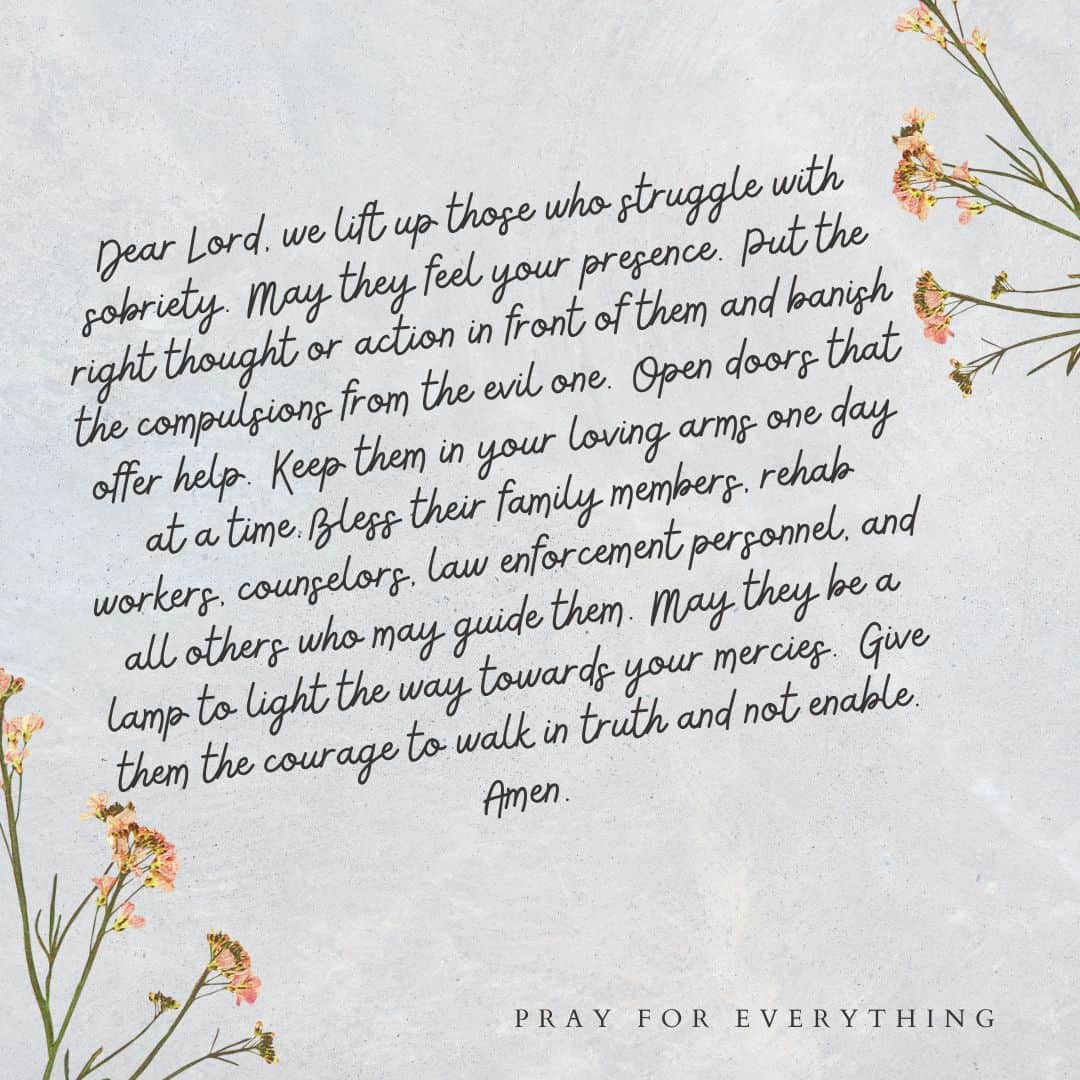 Dear Lord, we lift up those who struggle with
sobriety. May they feel your presence. Put the
right thought or action in front of them and banish
the compulsions from the evil one. Open doors that
offer help. Keep them in your loving arms one day
at a time. Bless their family members, rehab
workers, counselors, law enforcement personnel, and
all others who may guide them. May they be a
lamp to light the way towards your mercies. Give
them the courage to walk in truth and not enable.
Amen.
PRAY FOR EVERYTHING